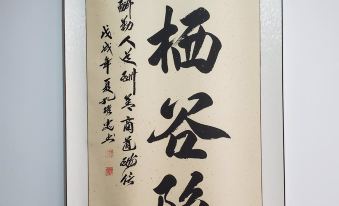 栖谷
酬勤人道酬善商道酬信
戊戌年夏孔